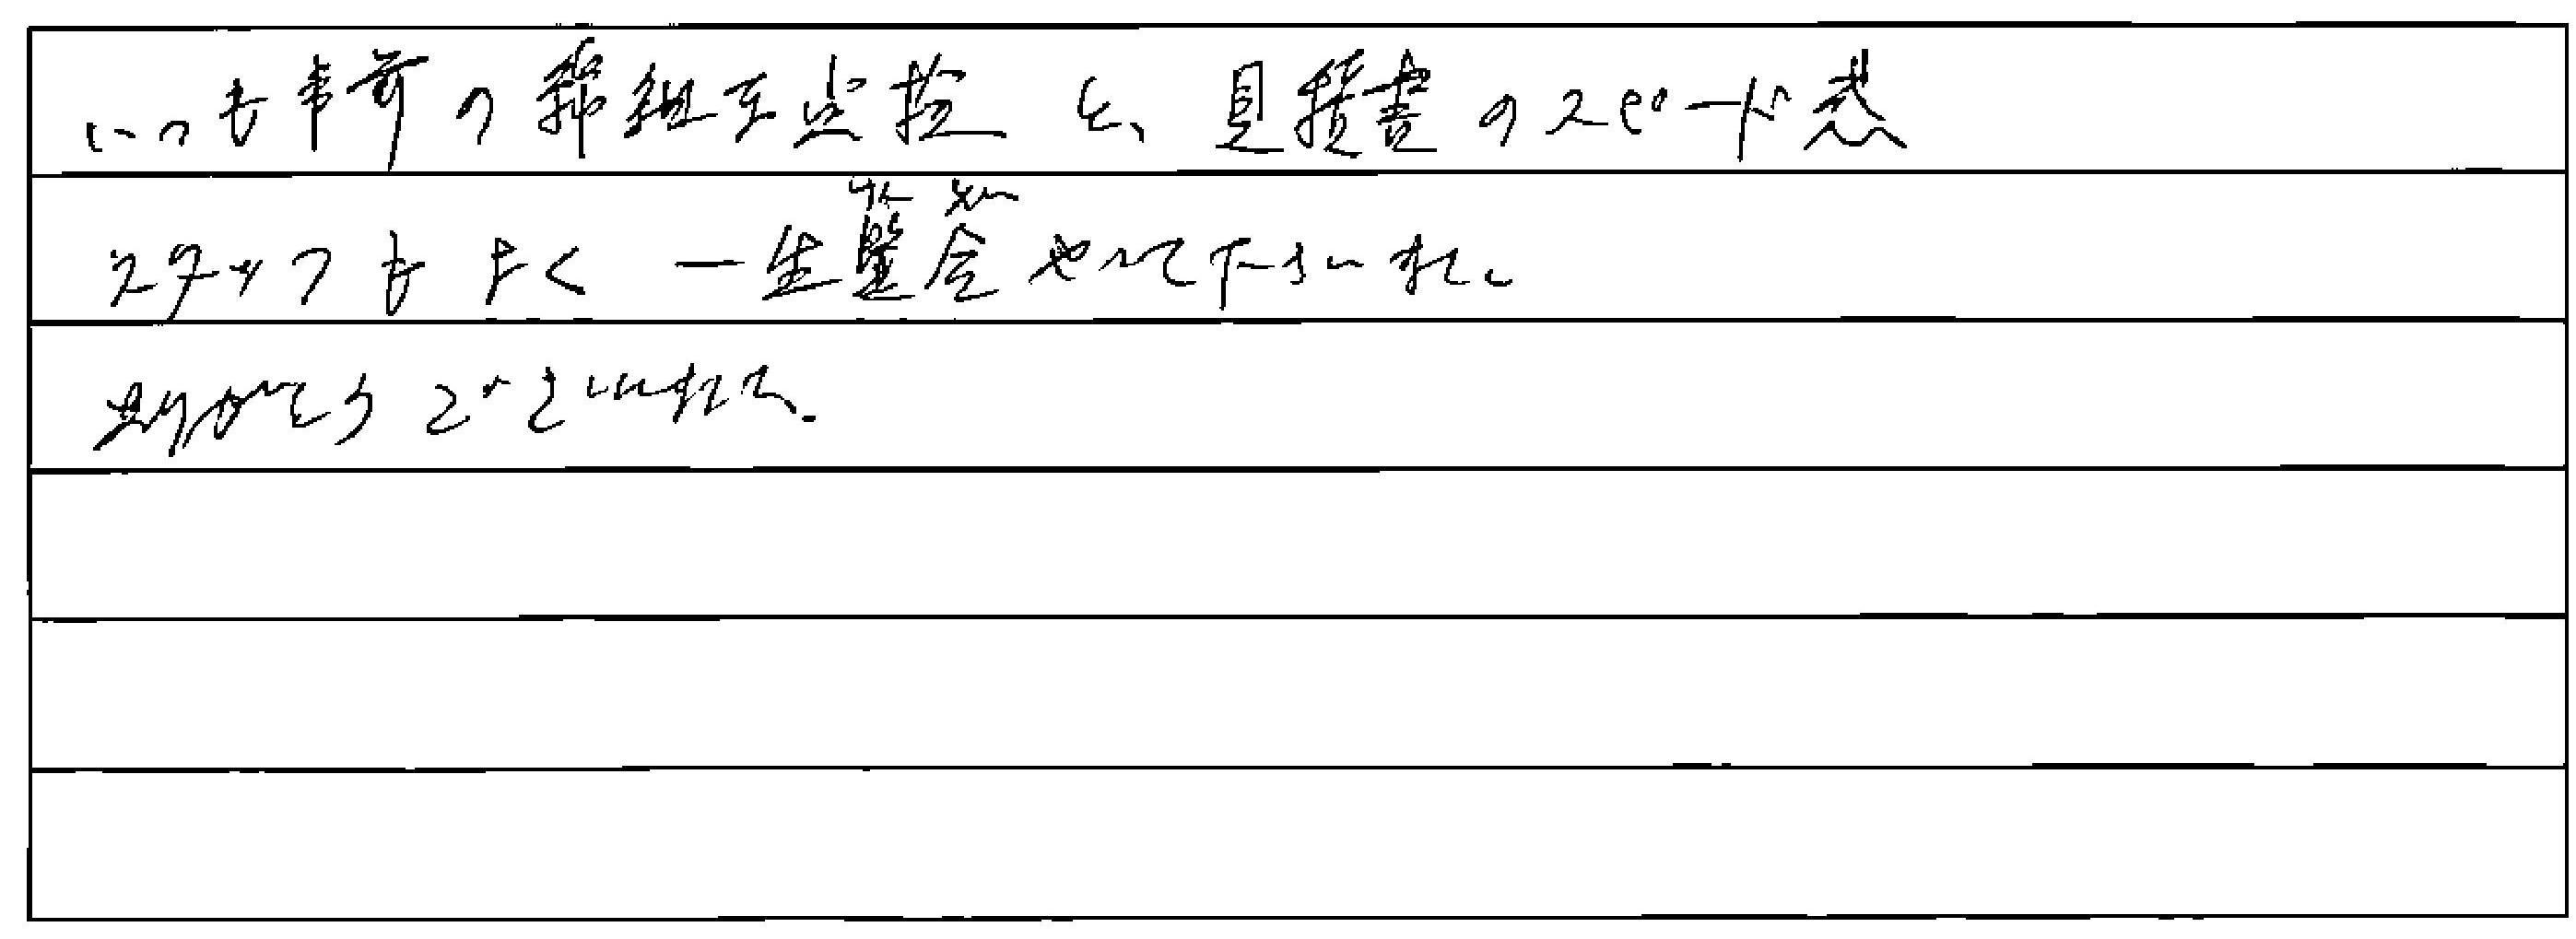 いつも事前の詳細な点検と、見積書のスピード感
スタッフもよく一生懸命やって下さいました。
ありがとうございました。